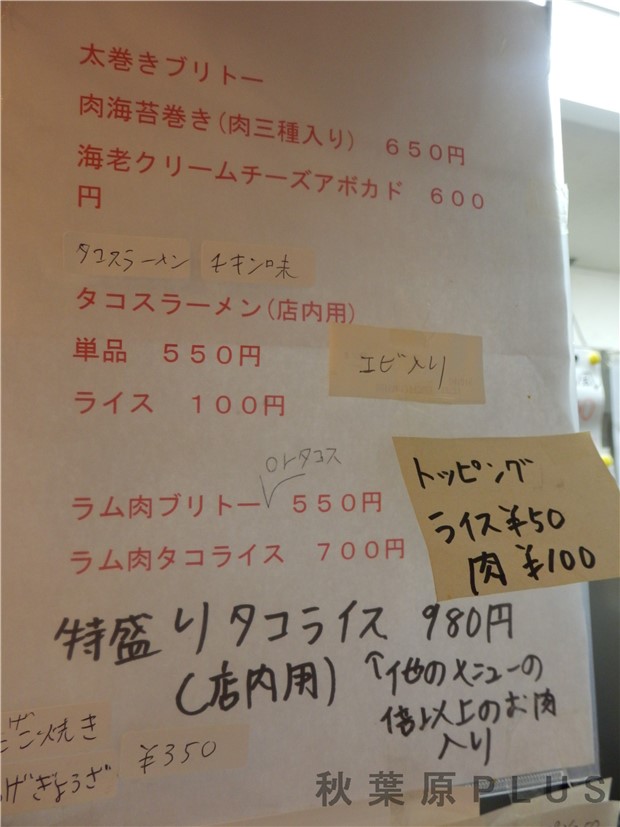 太巻きブリトー
肉海苔巻き(肉三種入り) 650円
海老クリームチーズアボカド 600
円
タコスラーメン チキン味
タコスラーメン(店内用)
単品 550円
エビ入り
ライス 100円
orタコス
ラム肉ブリトー 550円
ラム肉タコライス 700円
トッピング
ライス¥50
肉¥100
特盛りタコライス 980円
(店内用)
↑他のメニューの
倍以上のお肉
入り
焼き
げぎょうざ
¥350
秋葉原PLUS